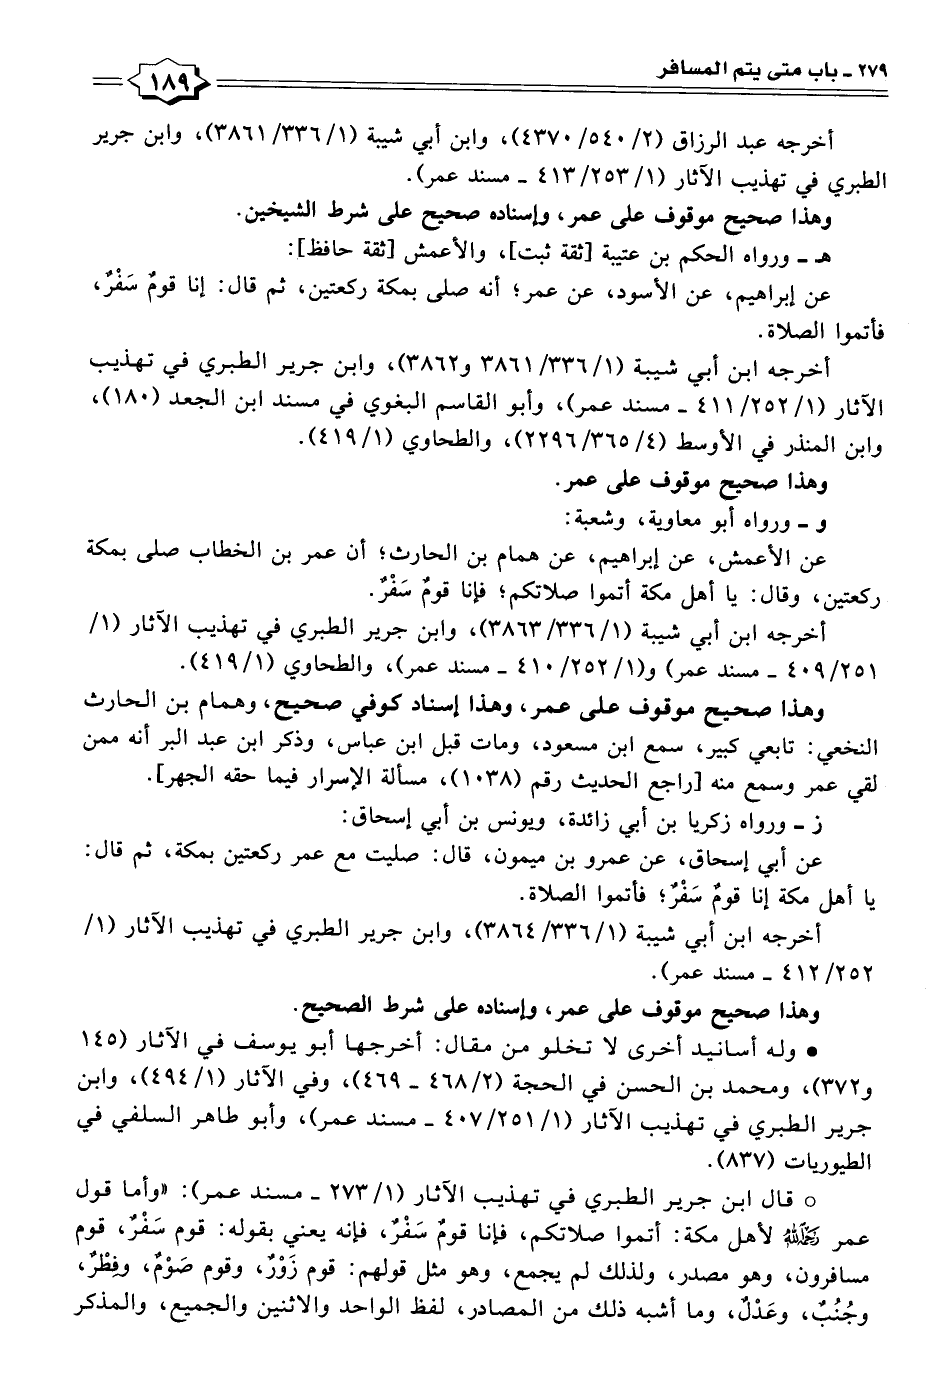 ٢٧٩ ـ باب متى يتم المسافر
١٨٩
أخرجه عبد الرزاق (٢/ ٥٤٠/ ٤٣٧٠)، وابن أبي شيبة (١/ ٣٣٦/ ٣٨٦١)، وابن جرير
الطبري في تهذيب الآثار (١/ ٢٥٣/ ٤١٣ ـ مسند عمر).
وهذا صحيح موقوف على عمر، وإسناده صحيح على شرط الشيخين.
هـ ـ ورواه الحكم بن عتيبة [ثقة ثبت]، والأعمش [ثقة حافظ]:
عن إبراهيم، عن الأسود، عن عمر؛ أنه صلى بمكة ركعتين، ثم قال: إنا قومٌ سَفْرٌ،
فأتموا الصلاة.
أخرجه ابن أبي شيبة (١/ ٣٣٦/ ٣٨٦١ و٣٨٦٢)، وابن جرير الطبري في تهذيب
الآثار (١/ ٢٥٢/ ٤١١ ـ مسند عمر)، وأبو القاسم البغوي في مسند ابن الجعد (١٨٠)،
وابن المنذر في الأوسط (٤/ ٣٦٥/ ٢٢٩٦)، والطحاوي (١/ ٤١٩).
وهذا صحيح موقوف على عمر.
و ـ ورواه أبو معاوية، وشعبة:
عن الأعمش، عن إبراهيم، عن همام بن الحارث؛ أن عمر بن الخطاب صلى بمكة
ركعتين، وقال: يا أهل مكة أتموا صلاتكم؛ فإنا قومٌ سَفْرٌ.
أخرجه ابن أبي شيبة (١/ ٣٣٦/ ٣٨٦٣)، وابن جرير الطبري في تهذيب الآثار (١/
٢٥١/ ٤٠٩ ـ مسند عمر) و(١/ ٢٥٢/ ٤١٠ ـ مسند عمر)، والطحاوي (١/ ٤١٩).
وهذا صحيح موقوف على عمر، وهذا إسناد كوفي صحيح، وهمام بن الحارث
النخعي: تابعي كبير، سمع ابن مسعود، ومات قبل ابن عباس، وذكر ابن عبد البر أنه ممن
لقي عمر وسمع منه [راجع الحديث رقم (١٠٣٨)، مسألة الإسرار فيما حقه الجهر].
ز ـ ورواه زكريا بن أبي زائدة، ويونس بن أبي إسحاق:
عن أبي إسحاق، عن عمرو بن ميمون، قال: صليت مع عمر ركعتين بمكة، ثم قال:
يا أهل مكة إنا قومٌ سَفْرٌ؛ فأتموا الصلاة.
أخرجه ابن أبي شيبة (١/ ٣٣٦/ ٣٨٦٤)، وابن جرير الطبري في تهذيب الآثار (١/
٢٥٢/ ٤١٢ ـ مسند عمر).
وهذا صحيح موقوف على عمر، وإسناده على شرط الصحيح.
• وله أسانيد أخرى لا تخلو من مقال: أخرجها أبو يوسف في الآثار (١٤٥
و٣٧٢)، ومحمد بن الحسن في الحجة (٢/ ٤٦٨ ـ ٤٦٩)، وفي الآثار (١/ ٤٩٤)، وابن
جرير الطبري في تهذيب الآثار (١/ ٢٥١/ ٤٠٧ ـ مسند عمر)، وأبو طاهر السلفي في
الطيوريات (٨٣٧).
○ قال ابن جرير الطبري في تهذيب الآثار (١/ ٢٧٣ ـ مسند عمر): «وأما قول
عمر رَحِمَهُ اللهُ لأهل مكة: أتموا صلاتكم، فإنا قومٌ سَفْرٌ، فإنه يعني بقوله: قوم سَفْرٌ، قوم
مسافرون، وهو مصدر، ولذلك لم يجمع، وهو مثل قولهم: قوم زَوْرٌ، وقوم صَوْمٌ، وفِطْرٌ،
وجُنُبٌ، وعَدْلٌ، وما أشبه ذلك من المصادر، لفظ الواحد والاثنين والجميع، والمذكر